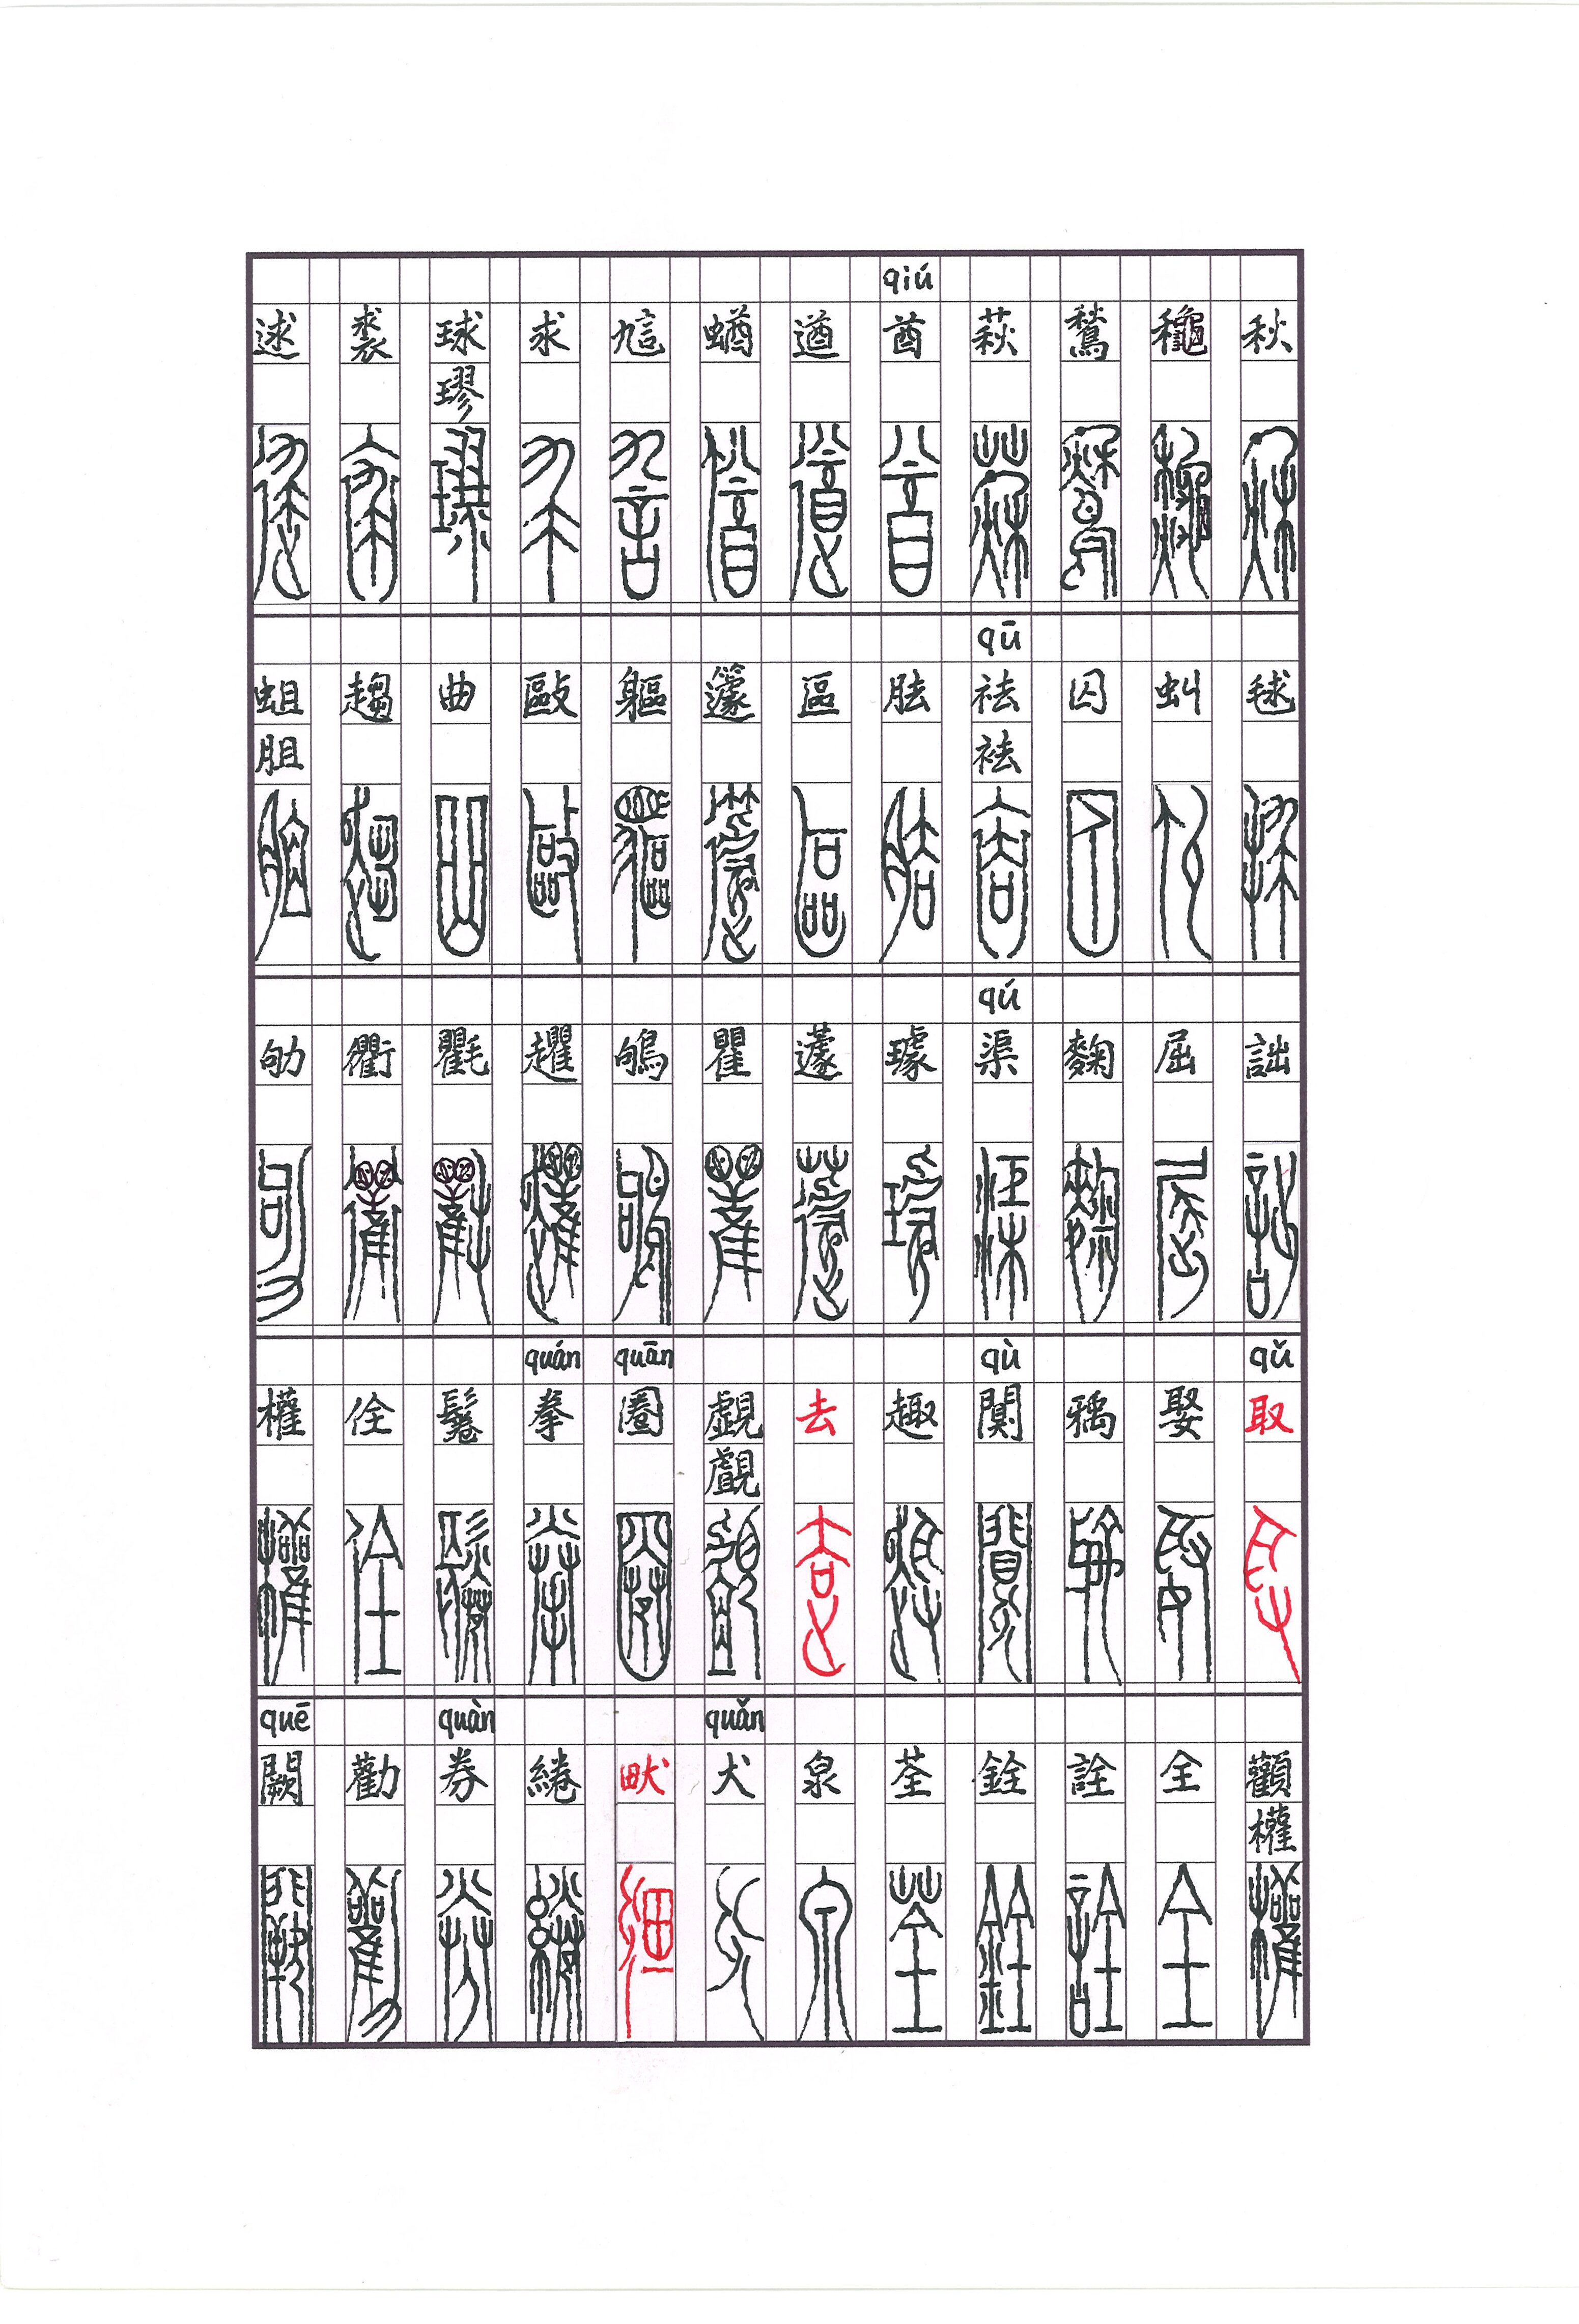 qiú
秋龝鶖萩酋遒蝤訄求球裘逑
璆
qū
毬虯囚祛胠區籧軀敺曲趨蛆
袪
qú
詘屈麴渠璩蘧瞿鴝氍衢劬
qǔ qù quān quán
取娶㺔闃趣去覷圈拳鬈佺權
覰
quǎn quàn quē
顴全詮銓荃泉犬畎綣券勸闕
權